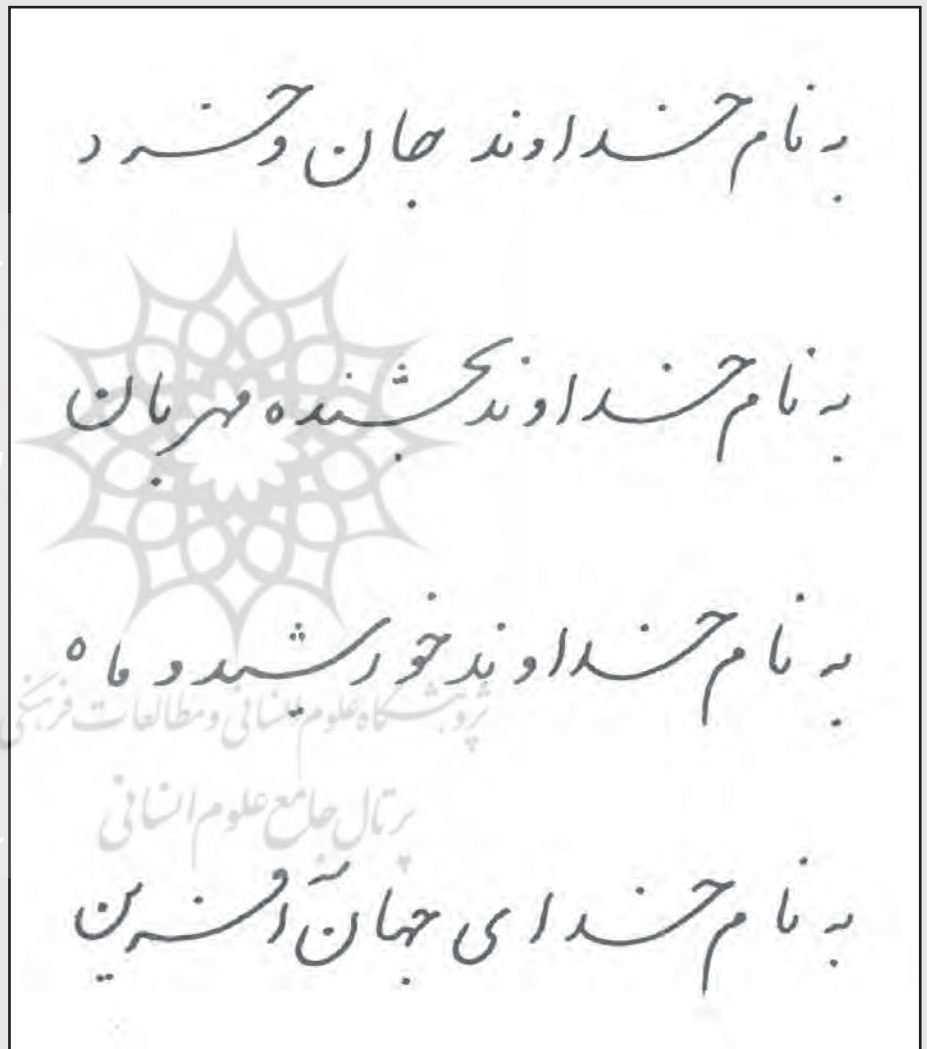 به نام خداوند جان و خرد
به نام خداوند بخشنده مهربان
به نام خداوند خورشید و ماه
پژوهشگاه علوم انسانی و مطالعات فرهنگی
پرتال جامع علوم انسانی
به نام خدای جهان آفرین